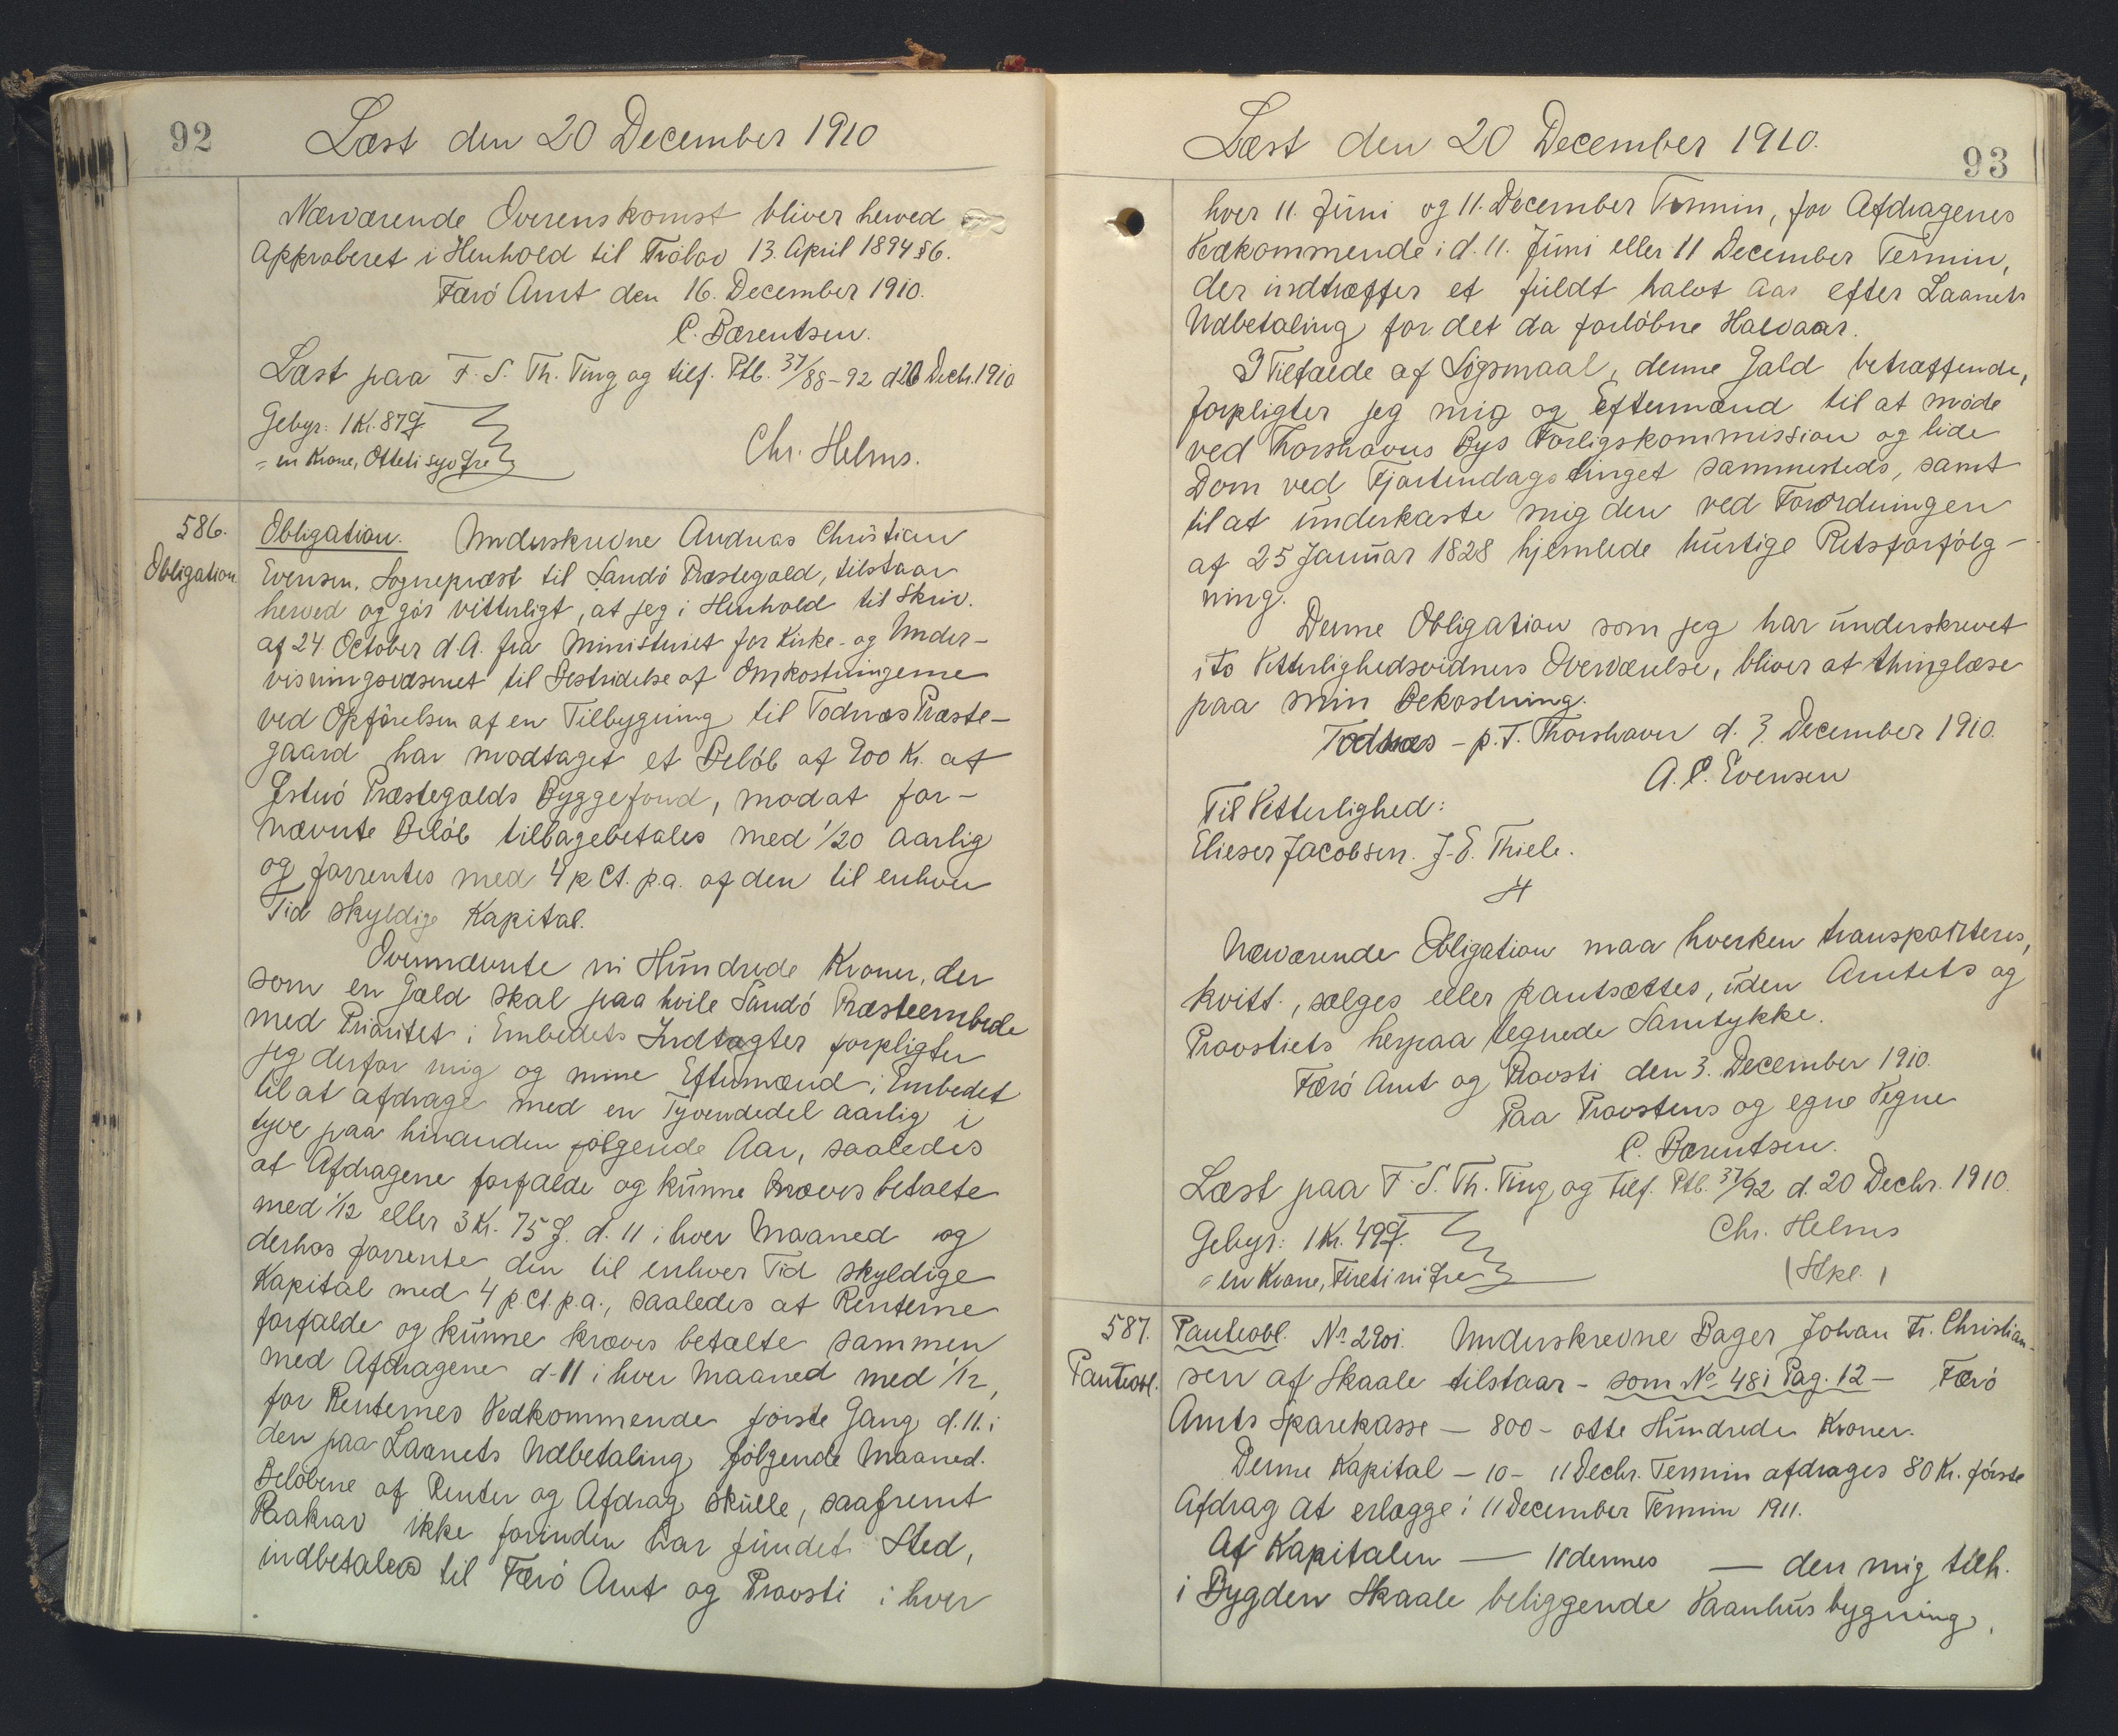 92
Læst den 20 December 1910
Nærværende Overenskomst bliver herved
approberet i Henhold til Frølov 13. April 1894 §6.
Færö Amt den 16. December 1910.
C. Bærentsen.
Læst paa F. S. Th. Ting og tilf. Ptb. 37/88-92 d 20 Decbr. 1910
Gebyr: 1 Kr. 87 Ø
= en Krone, Ottetisyv Øre
Chr. Helms.
586.
Obligation
Obligation. Underskrevne Andreas Christian
Evensen, Sognepræst til Sandö Præstegæld, tilstaar
herved og gör vitterligt, at jeg i Henhold til Skriv.
af 24 October d.A. fra Ministeriet for Kirke- og Under-
visningsvæsenet til Bestridelse af Omkostningerne
ved Opförelsen af en Tilbygning til Todnæs Præste-
gaard har modtaget et Belöb af 900 Kr. af
Østerö Præstegælds Byggefond, mod at for-
nævnte Belöb tilbagebetales med 1/20 aarlig
og forrentes med 4 p Ct. p.a. af den til enhver
Tid skyldige Kapital.
Ovennævnte ni Hundrede Kroner, der
som en Gæld skal paa hvile Sandö Præsteembede
med Prioritet i Embedets Indtægter forpligter
jeg derfor mig og mine Eftermænd i Embedet
til at afdrage med en Tyvendedel aarlig i
tyve paa hinanden fölgende Aar, saaledes
at Afdragene forfalde og kunne kræves betalte
med 1/12 eller 3 Kr. 75 Ø. d. 11 i hver Maaned og
derhos forrente den til enhver Tid skyldige
Kapital med 4 p.Ct. p.a., saaledes at Renterne
forfalde og kunne kræves betalte sammen
med Afdragene d. 11 i hver Maaned med 1/12,
for Renternes Vedkommende förste Gang d. 11. i
den paa Laanets Udbetaling fölgende Maaned.
Belöbene af Renter og Afdrag skulle, saafremt
Paakrav ikke forinden har fundet Sted,
indbetales til Færö Amt og Provsti i hver
93
Læst den 20 December 1910.
hver 11. Juni og 11. December Termin, for Afdragenes
Vedkommende i d. 11. Juni eller 11 December Termin,
der indtræffer et fuldt halvt Aar efter Laanets
Udbetaling for det da forlöbne Halvaar.
I Tilfælde af Sögsmaal, denne Gæld betræffende,
forpligter jeg mig og Eftermænd til at möde
ved Thorshavns Bys Forligskommission og lide
Dom ved Fjortendagstinget sammesteds, samt
til at underkaste mig den ved Forordningen
af 25 Januar 1828 hjemlede hurtige Retsforfölg-
ning.
Denne Obligation som jeg har underskrevet
i to Vitterlighedsvidners Overværelse, bliver at thinglæse
paa min Bekostning.
Todnæs - p. T. Thorshavn d. 3. December 1910.
A. C. Evensen
Til Vitterlighed:
Elieser Jacobsen. J. E. Thiele.
Nærværende Obligation maa hverken transporteres,
kvitt., sælges eller pantsættes, uden Amtets og
Provstiets herpaa tegnede Samtykke.
Færö Amt og Provsti den 3. December 1910.
Paa Provstens og egne Vegne
C. Bærentsen.
Læst paa F. S. Th. Ting og tilf. Ptb. 37/92 d. 20 Decbr. 1910.
Gebyr: 1 Kr. 49 Ø.
= en Krone, Firetini Øre
Chr. Helms
587.
Panteobl.
Panteobl. No 2901. Underskrevne Bager Johan Fr. Christian-
sen af Skaale tilstaar - som No 48 i Pag. 12 - Færö
Amts Sparekasse - 800 - otte Hundrede Kroner.
Denne Kapital - 10 - 11 Decbr. Termin afdrages 80 Kr. förste
Afdrag at erlægge i 11 December Termin 1911.
Af Kapitalen — 11 dennes — den mig tilh.
i Bygden Skaale beliggende Vaanhusbygning,